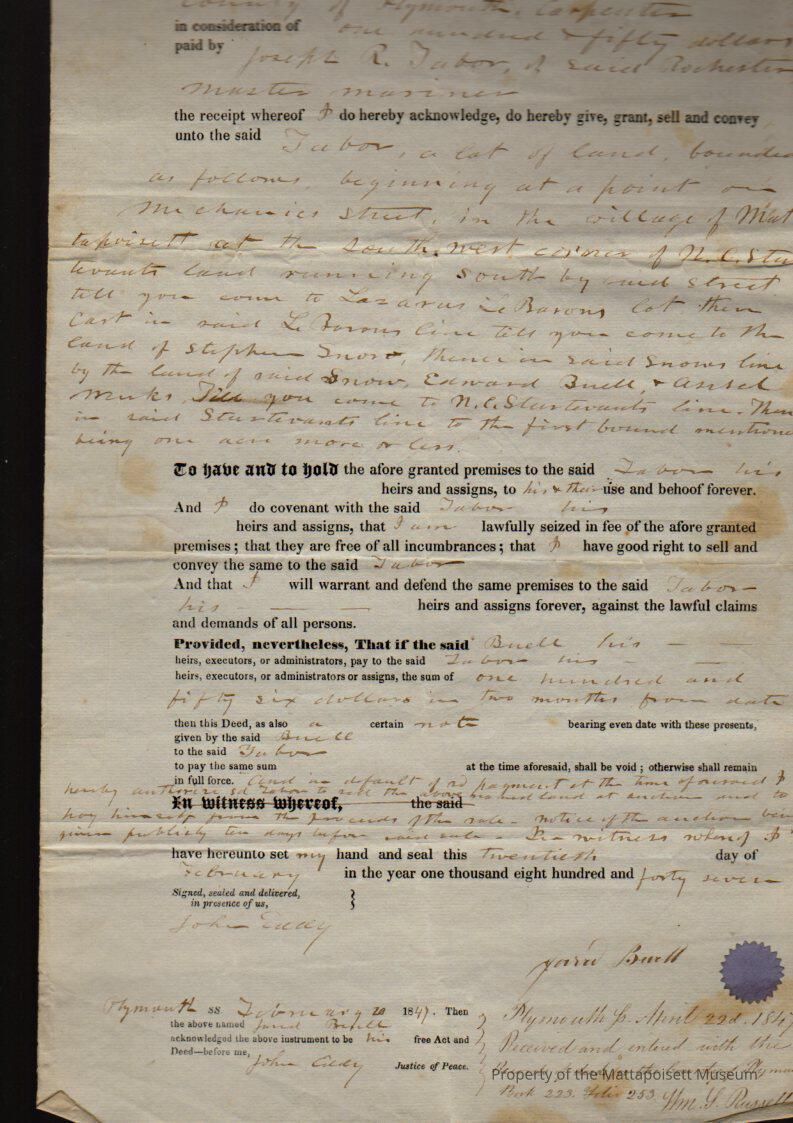 County of Plymouth, Carpenter
in consideration of one hundred & fifty dollars
paid by
Joseph R. Tabor, of said Rochester
master mariner
the receipt whereof I do hereby acknowledge, do hereby give, grant, sell and convey
unto the said Tabor, a lot of land, bounded
as follows, beginning at a point on
Mechanics Street, in the village of Mat
tapoisett at the South west corner of N. C. Stur
tevants land running South by said street
till you come to Lazarus Le Barons lot then
East in said Le Barons line till you come to the
land of Stephen Snow, thence in said Snows line
by the land of said Snow, Edward Buell, & Ansel
Weeks Till you come to N. C. Sturtevants line. Then
in said Sturtevants line to the first bound mentione
being one acre more or less.
To have and to hold the afore granted premises to the said Tabor his
heirs and assigns, to his & their use and behoof forever.
And I do covenant with the said Tabor his
heirs and assigns, that I am lawfully seized in fee of the afore granted
premises; that they are free of all incumbrances; that I have good right to sell and
convey the same to the said Tabor
And that I will warrant and defend the same premises to the said Tabor
his heirs and assigns forever, against the lawful claims
and demands of all persons.
Provided, nevertheless, That if the said Buell his
heirs, executors, or administrators, pay to the said Tabor his
heirs, executors, or administrators or assigns, the sum of one hundred and
fifty six dollars in two months from date
then this Deed, as also a certain note bearing even date with these presents,
given by the said Buell
to the said Tabor
to pay the same sum at the time aforesaid, shall be void; otherwise shall remain
in full force. And in default of sd payment at the time aforesaid I
hereby authorize sd Tabor to sell the above named land at auction and to
In witness whereof, the said
pay himself from the proceeds of the sale - notice of the auction being
given publicly ten days before said sale - In witness whereof I
have hereunto set my hand and seal this twentieth day of
February in the year one thousand eight hundred and forty seven
Signed, sealed and delivered,
in presence of us,
John Eddy
Jarid Buell
Plymouth SS. February 20 1847. Then
the above named Jarid Buell
acknowledged the above instrument to be his free Act and
Deed—before me,
John Eddy Justice of Peace.
Plymouth ss. April 22d. 1847
Received and entered with the
Book 223. Folio 253
Wm. S. Russell
Property of the Mattapoisett Museum